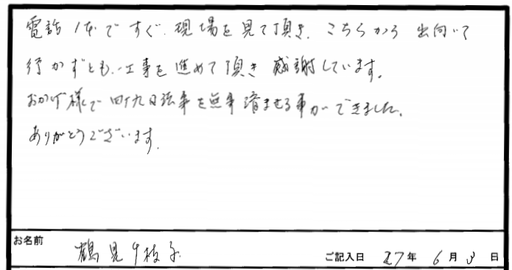 電話1本ですぐ、現場を見て頂き、こちらから出向いて
行かずとも、工事を進めて頂き感謝しています。
おかげ様で四十九日法事を無事済ませる事ができました。
ありがとうございます。
お名前 鶴見千枝子 ご記入日 27年 6月 3日